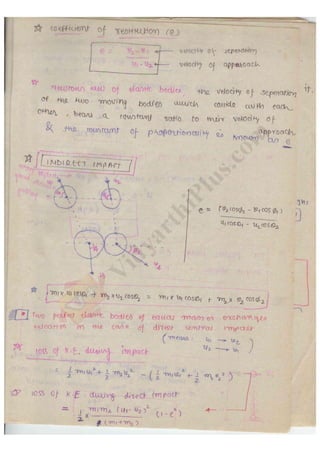 ☆ coefficient of restitution (e)
e = v₂ - v₁ / u₁ - u₂ → velocity of separation
→ velocity of approach
☆ Newtons law of elastic bodies the velocity of separation
of the two moving bodies which collide with each
other, bears a constant ratio to their velocity of
approach
& the constant of proportionality is known as e
☆ INDIRECT IMPACT
e = (v₂cosϕ₂ - v₁cosϕ₁) / u₁cosθ₁ - u₂cosθ₂
☆ m₁ × u₁ cosθ₁ + m₂ × u₂ cosθ₂ = m₁ × v₁ cosϕ₁ + m₂ × v₂ cosϕ₂
Two perfect elastic bodies of equal masses exchanges
velocities in the case of direct central impact
(means: u₁ → v₂
u₂ → v₁)
loss of K.E. during impact
= ½ m₁u₁² + ½ m₂u₂² - (½ m₁v₁² + ½ m₂v₂²)
loss of K.E during direct impact
= ½ × m₁m₂ (u₁-u₂)² / (m₁+m₂) (1-e²)
VidyarthiPlus.com